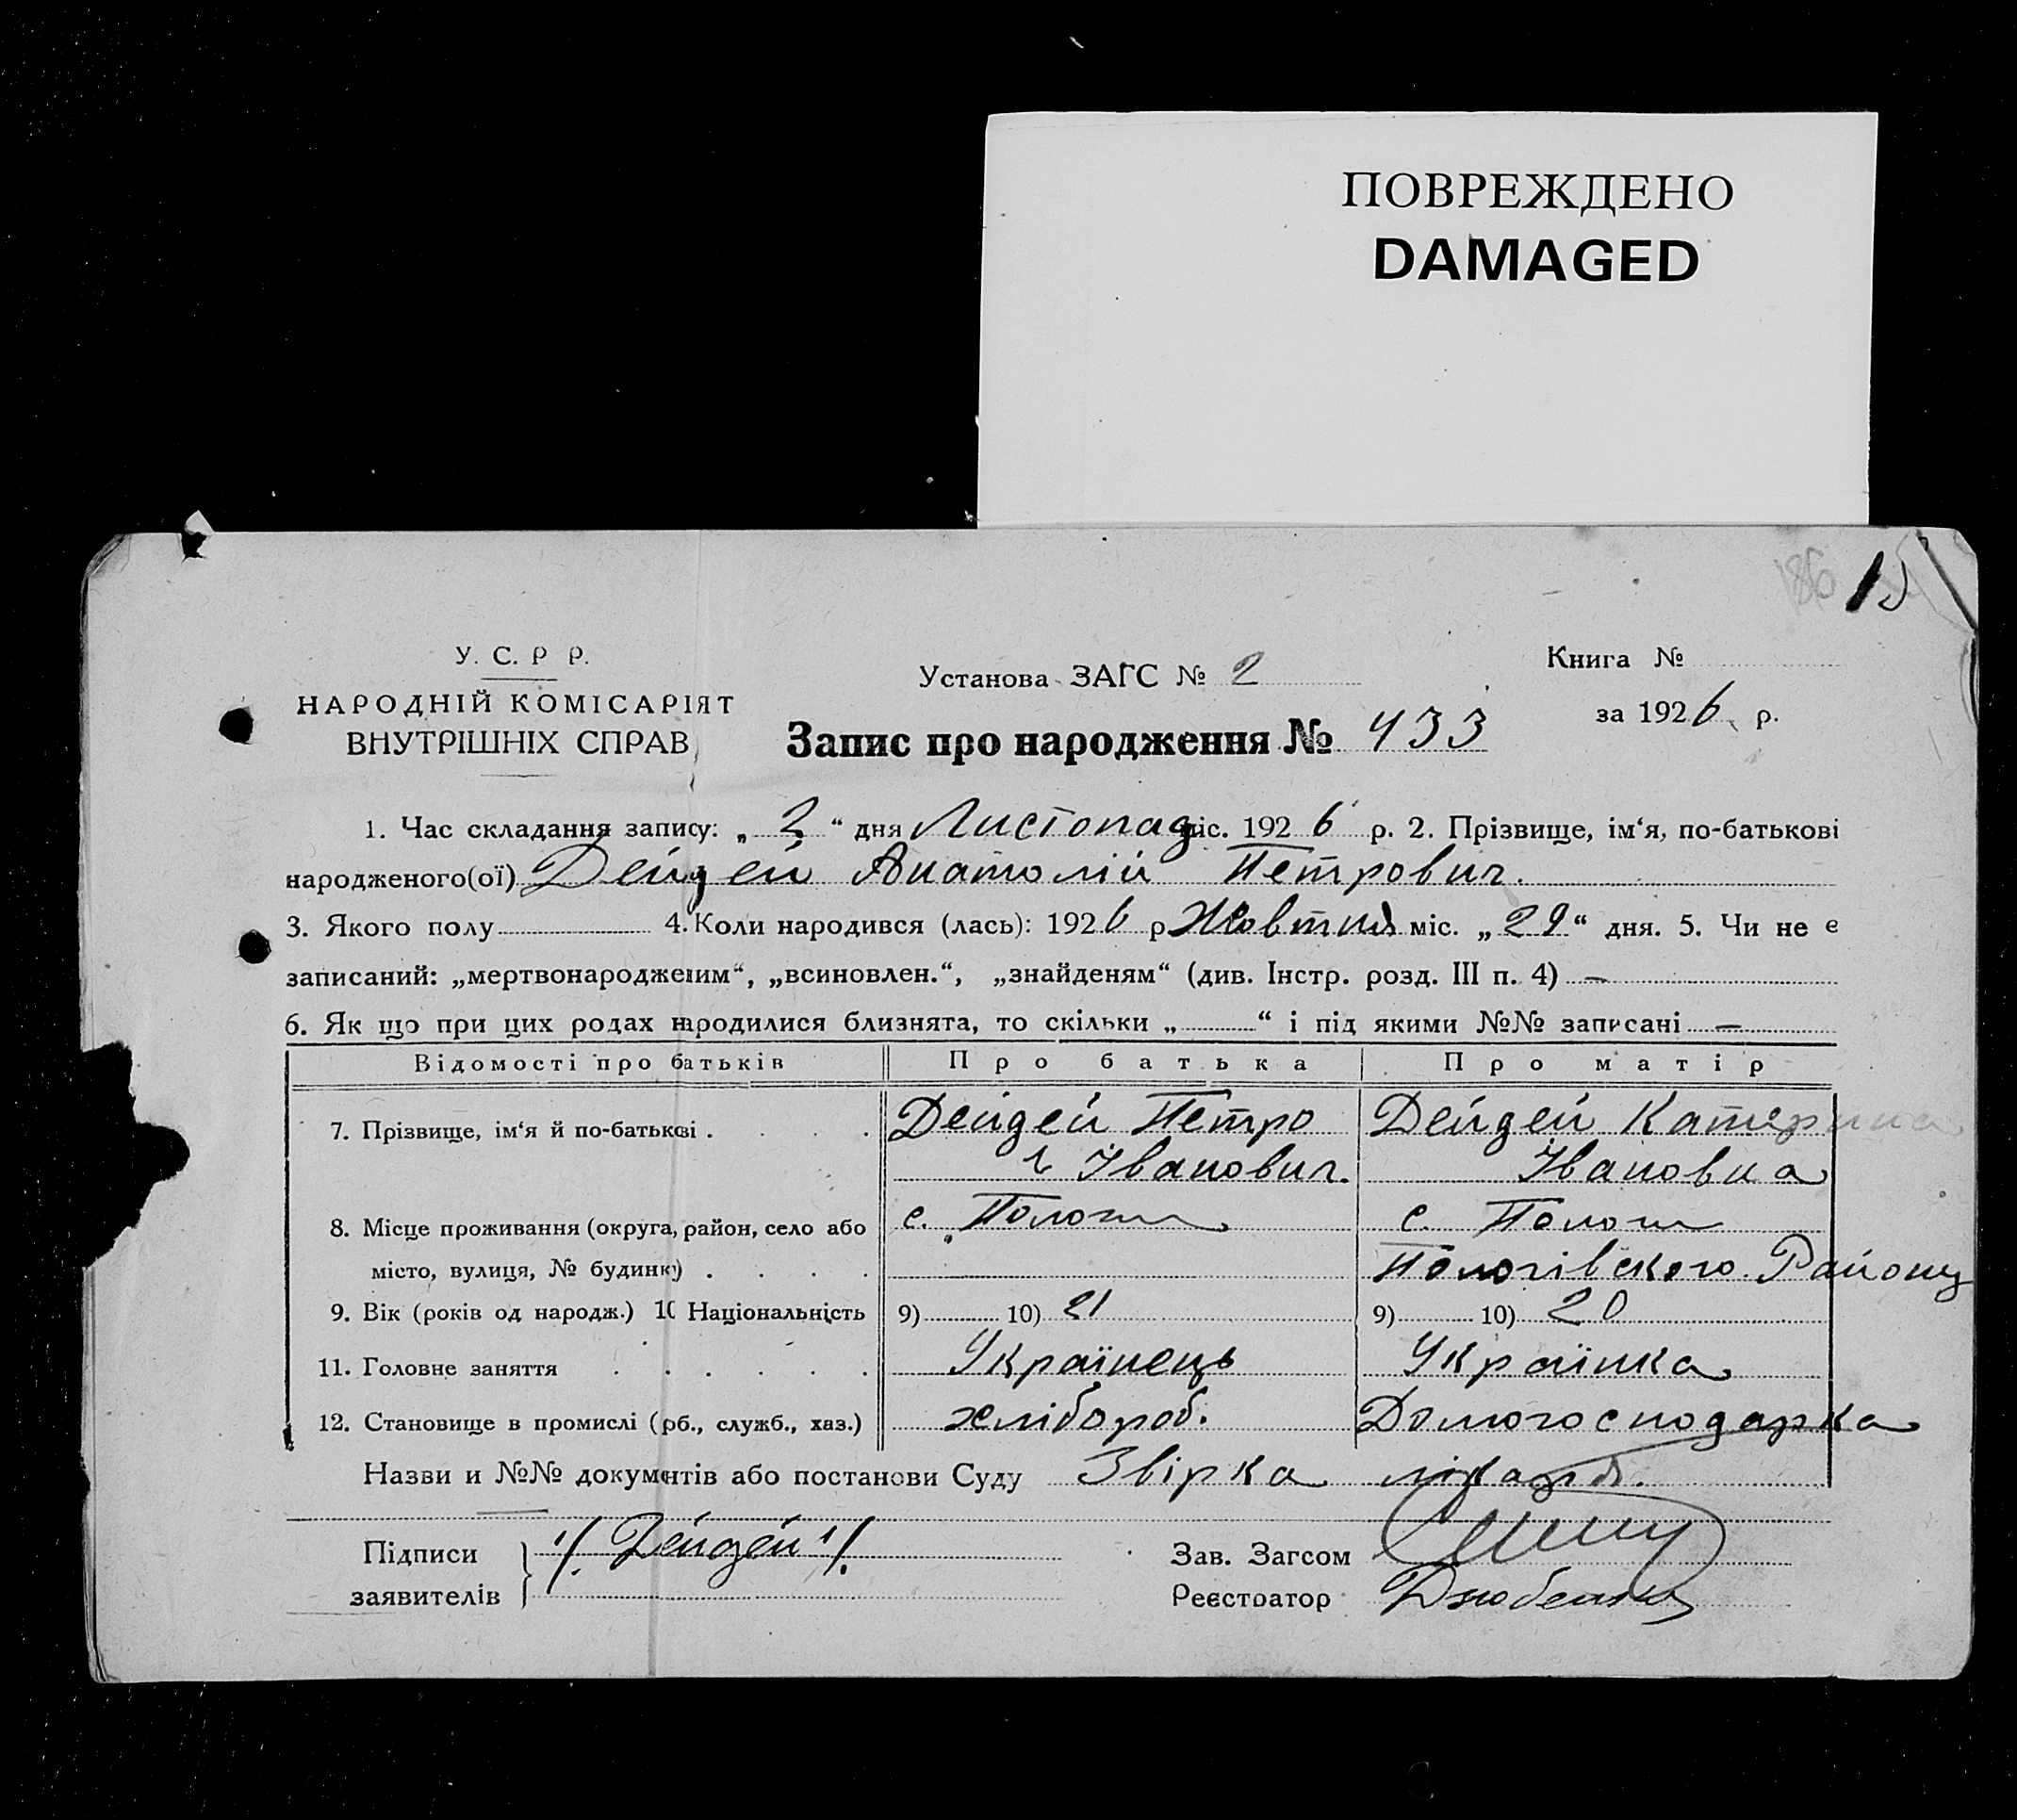 ПОВРЕЖДЕНО
DAMAGED
186 15
У. С. Р Р.
НАРОДНІЙ КОМІСАРІЯТ
ВНУТРІШНІХ СПРАВ
Установа ЗАГС № 2
Запис про народження № 433
Книга №
за 1926 р.
1. Час складання запису: „ 2 “ дня Листопад міс. 1926 р. 2. Прізвище, ім‘я, по-батькові
народженого(ої) Дейдей Анатолій Петрович.
3. Якого полу 4. Коли народився (лась): 1926 р Жовтня міс. „ 29 “ дня. 5. Чи не є
записаний: „мертвонародженим“, „всиновлен.“, „знайденям“ (див. Інстр. розд. III п. 4) —
6. Як що при цих родах народилися близнята, то скільки „ “ і під якими №№ записані —
Відомості про батьків Про батька Про матір
7. Прізвище, ім‘я й по-батькові . Дейдей Петро Дейдей Катерина
Іванович. Івановна
8. Місце проживання (округа, район, село або с. Пологи с. Пологи
місто, вулиця, № будинку) . Пологівского Району
9. Вік (років од народж.) 10 Національність 9) 10) 21 9) 10) 20
11. Головне заняття Українець Українка
12. Становище в промислі (рб., служб., хаз.) хлібороб. Домогосподарка
Назви и №№ документів або постанови Суду Звірка лікаря.
Підписи /Дейдей/. Зав. Загсом
заявителів Реєстратор